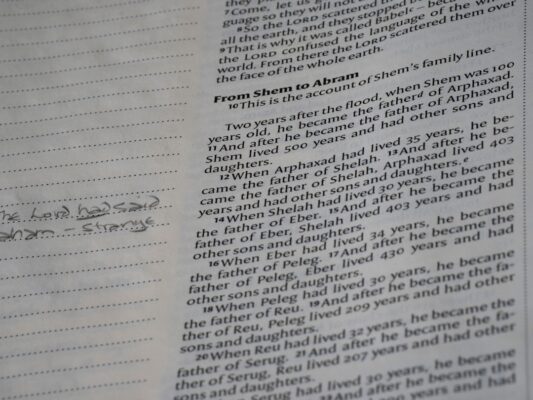 he Lord had said
aham – strange
they pl
7 Come, let us g
guage so they will not
8 So the LORD scattered
all the earth, and they stopped b
9 That is why it was called Babel c — bec
the LORD confused the language of the whole
world. From there the LORD scattered them over
the face of the whole earth.
From Shem to Abram
10 This is the account of Shem's family line.
Two years after the flood, when Shem was 100
years old, he became the father d of Arphaxad.
11 And after he became the father of Arphaxad,
Shem lived 500 years and had other sons and
daughters.
12 When Arphaxad had lived 35 years, he be-
came the father of Shelah. 13 And after he be-
came the father of Shelah, Arphaxad lived 403
years and had other sons and daughters. e
14 When Shelah had lived 30 years, he became
the father of Eber. 15 And after he became the
father of Eber, Shelah lived 403 years and had
other sons and daughters.
16 When Eber had lived 34 years, he became
the father of Peleg. 17 And after he became the
father of Peleg, Eber lived 430 years and had
other sons and daughters.
18 When Peleg had lived 30 years, he became
the father of Reu. 19 And after he became the fa-
ther of Reu, Peleg lived 209 years and had other
sons and daughters.
20 When Reu had lived 32 years, he became the
father of Serug. 21 And after he became the fa-
ther of Serug, Reu lived 207 years and had other
sons and daughters.
Serug had lived 30 years, he became
And after he became the
years and had